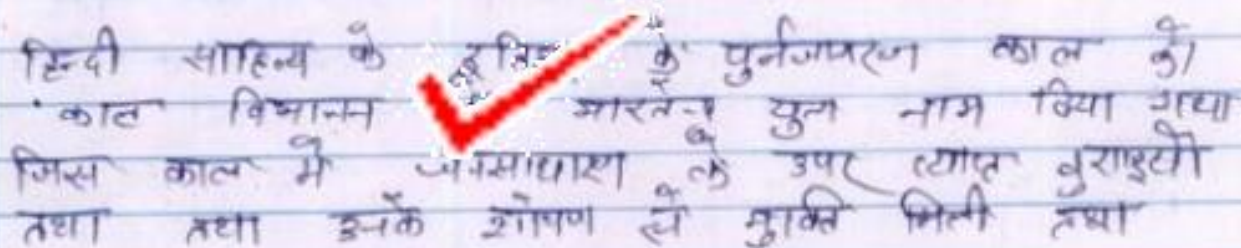 हिन्दी साहित्य के के पुर्नजागरण काल को
काल विभाजन भारतेन्दु युग नाम दिया गया
जिस काल में जनसाधारण के उपर व्याप्त बुराइयों
तथा तथा उनके शोषण से मुक्ति मिली तथा